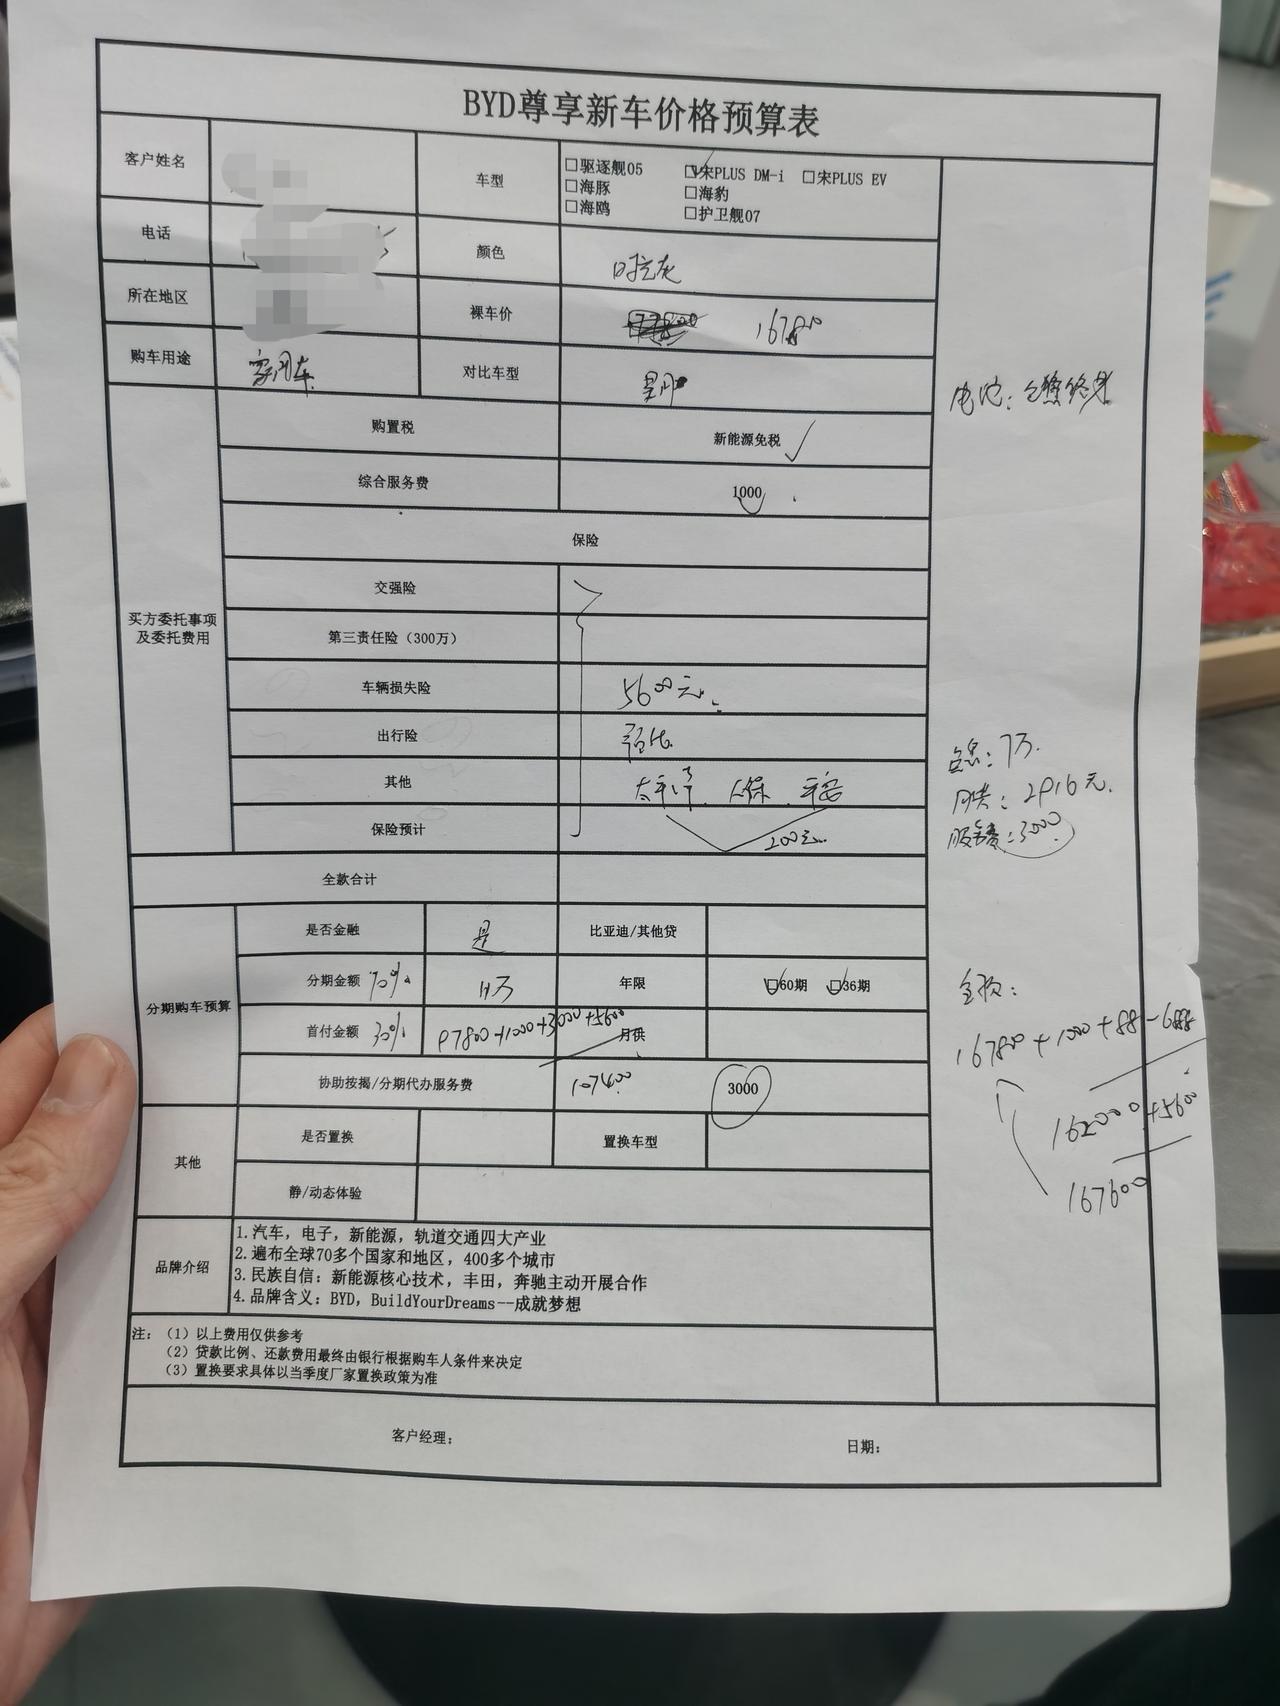 BYD尊享新车价格预算表
客户姓名
车型
□驱逐舰05 □宋PLUS DM-i □宋PLUS EV
□海豚 □海豹
□海鸥 □护卫舰07
电话
颜色
灰
所在地区
裸车价
167800
购车用途
家用车
对比车型
电池:
买方委托事项
及委托费用
购置税
新能源免税
综合服务费
1000
保险
交强险
第三责任险（300万）
车辆损失险
5600元
出行险
预估
其他
太平洋、人保、平安
保险预计
200元
总: 7万.
月供: 2916元.
服务费: 3000
全款合计
分期购车预算
是否金融
是
比亚迪/其他贷
分期金额 70%
万
年限
□60期 □36期
首付金额 30%
97800+1000+3000+5600
月供
协助按揭/分期代办服务费
107400
3000
全款:
167800+1000+88-6888
162000+5600
167600
其他
是否置换
置换车型
静/动态体验
品牌介绍
1.汽车，电子，新能源，轨道交通四大产业
2.遍布全球70多个国家和地区，400多个城市
3.民族自信：新能源核心技术，丰田，奔驰主动开展合作
4.品牌含义：BYD，BuildYourDreams--成就梦想
注：（1）以上费用仅供参考
（2）贷款比例、还款费用最终由银行根据购车人条件来决定
（3）置换要求具体以当季度厂家置换政策为准
客户经理：
日期：